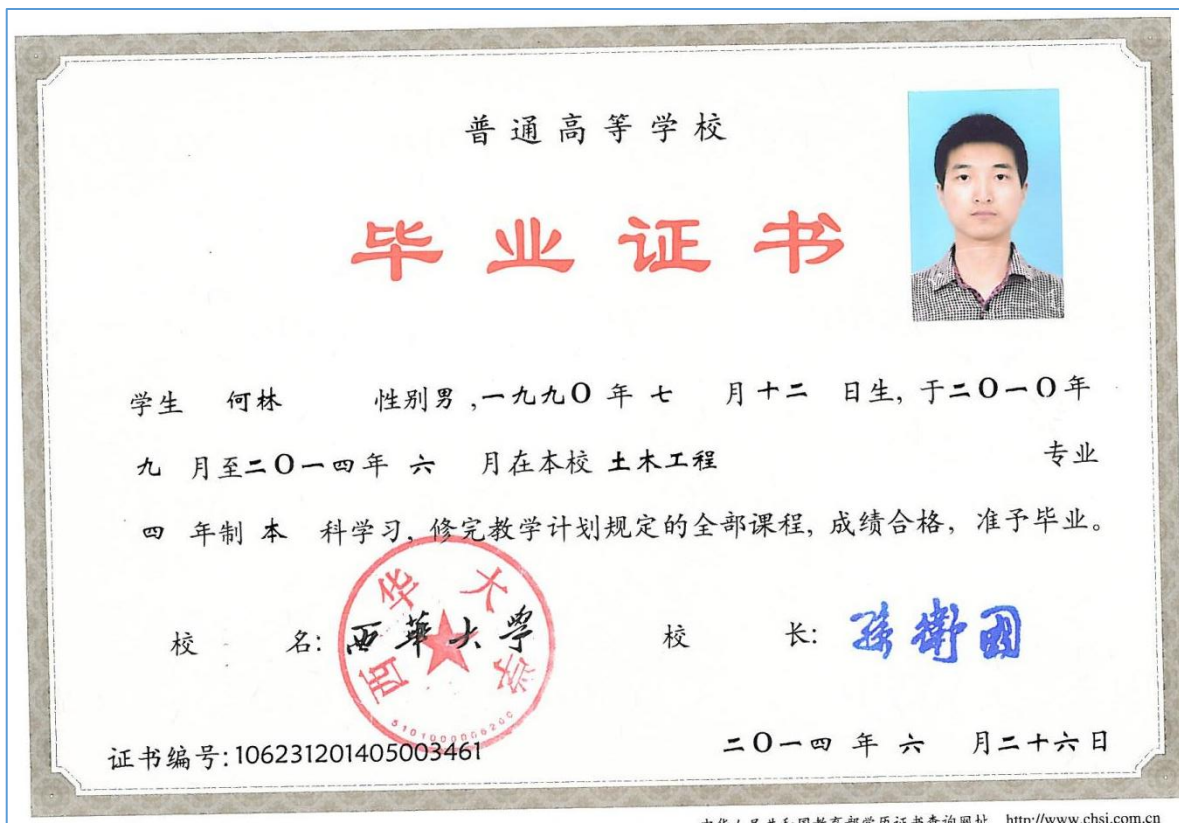 普通高等学校
毕业证书
学生 何林 性别男,一九九〇年七月十二日生,于二〇一〇年
九月至二〇一四年六月在本校土木工程 专业
四年制本科学习,修完教学计划规定的全部课程,成绩合格,准予毕业。
校 名:西華大学
西华大学
5101000006200
校 长:孫衛国
证书编号:106231201405003461
二〇一四年六月二十六日
中华人民共和国教育部学历证书查询网址 http://www.chsi.com.cn